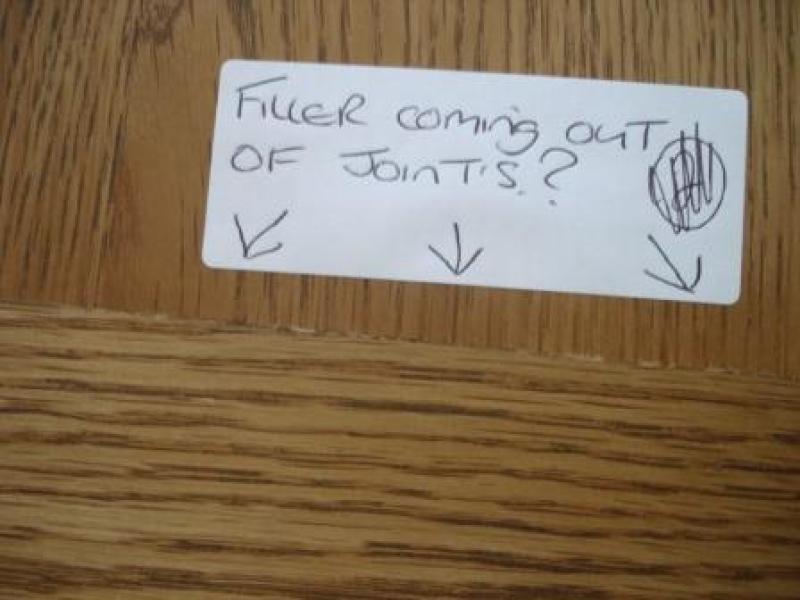 FILLER COMING OUT
OF JOINT'S.?